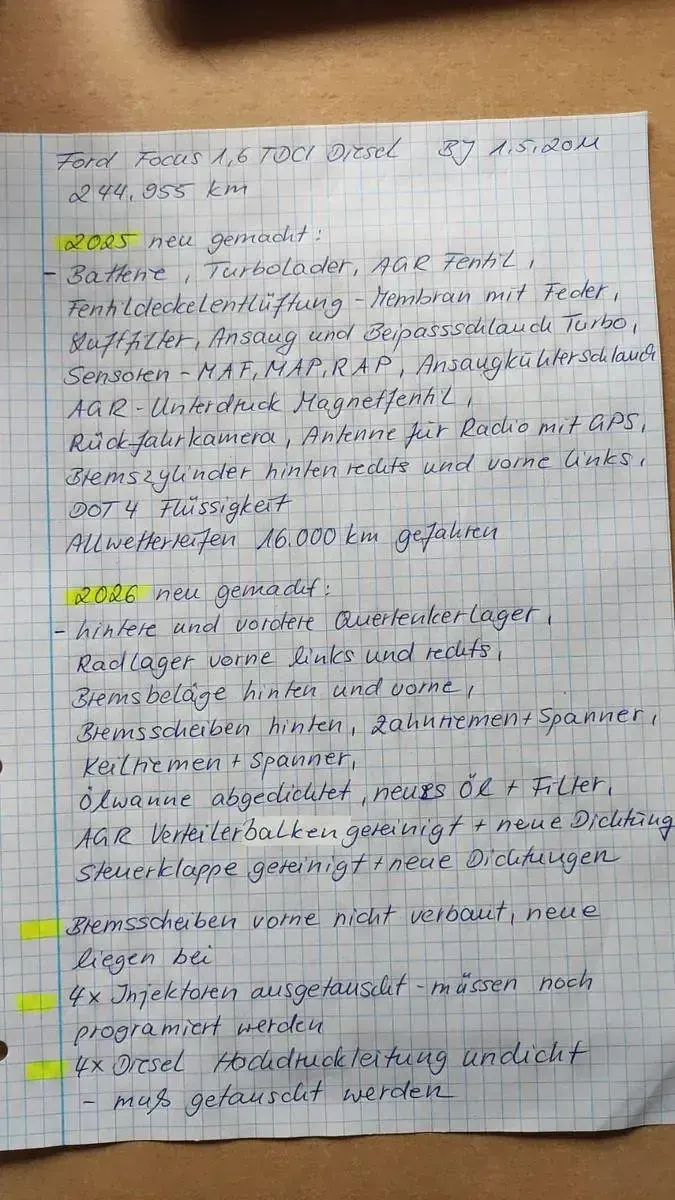 Ford Focus 1,6 TDCI Diesel BJ 1.5.2011
244.955 km
2025 neu gemacht:
- Batterie, Turbolader, AGR Fentil,
Fenhildeckelentlüftung - Membran mit Feder,
Luftfilter, Ansaug und Beipassschlauch Turbo,
Sensoren - MAF, MAP, RAP, Ansaugkühlerschlauch
AGR - Unterdruck Magnetfentil,
Rückfahrkamera, Antenne für Radio mit GPS,
Bremszylinder hinten rechts und vorne links,
DOT 4 Flüssigkeit
Allwetterreifen 16.000 km gefahren
2026 neu gemacht:
- hintere und vordere Querlenkerlager,
Radlager vorne links und rechts,
Bremsbeläge hinten und vorne,
Bremsscheiben hinten, Zahnriemen + Spanner,
Keilriemen + Spanner,
Ölwanne abgedichtet, neues Öl + Filter,
AGR Verteilerbalken gereinigt + neue Dichtung
Steuerklappe gereinigt + neue Dichtungen
Bremsscheiben vorne nicht verbaut, neue
liegen bei
4x Injektoren ausgetauscht - müssen noch
programiert werden
4x Diesel Hochdruckleitung undicht
- muß getauscht werden